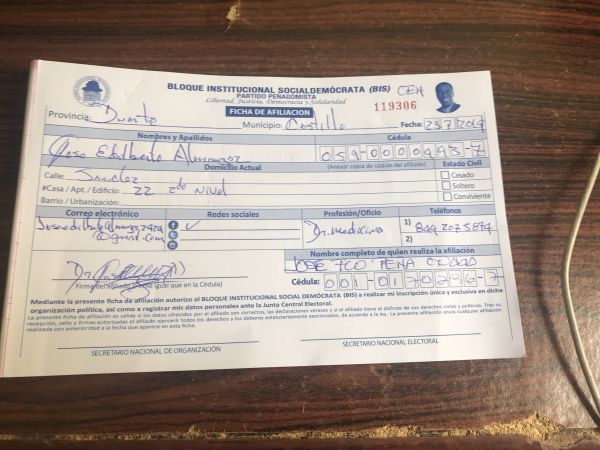 BLOQUE INSTITUCIONAL SOCIALDEMÓCRATA (BIS) CEN
PARTIDO PEÑAGOMISTA
Libertad, Justicia, Democracia y Solidaridad
119306
FICHA DE AFILIACION
Provincia: Duarte Municipio: Castillo Fecha: 23/7/2019
Nombres y Apellidos Cédula
Jose Edilberto Almanzar 059-0000493-7
(Anexar copia de cédula del afiliado)
Domicilio Actual Estado Civil
Calle: Sanchez Casado
#Casa / Apt. / Edificio: 22 2do Nivel Soltero
Barrio / Urbanización: Conviviente
Correo electrónico Redes sociales Profesión/Oficio Teléfonos
Dr. Medicina 1) 849 207 5874
@gmail.com 2)
Nombre completo de quien realiza la afiliación
JOSE FCO PEÑA
Firma del afiliado (firme igual que en la Cédula) Cédula: 001-0170286-7
Mediante la presente ficha de afiliación autorizo al BLOQUE INSTITUCIONAL SOCIAL DEMÓCRATA (BIS) a realizar mi inscripción única y exclusiva en dicha
organización política, así como a registrar mis datos personales ante la Junta Central Electoral.
La presente afiliación es válida y si los datos ofrecidos por el afiliado son correctos, las declaraciones veraces y si el afiliado tiene el disfrute de sus derechos civiles y políticos. Tras su
recepción, sello y firmas autorizadas el afiliado ejercerá todos los derechos y los deberes estatutariamente sancionados, de acuerdo a la ley. La presente afiliación anula cualquier afiliación
realizada con anterioridad a la fecha que aparece en esta ficha.
SECRETARIO NACIONAL DE ORGANIZACIÓN SECRETARIO NACIONAL ELECTORAL